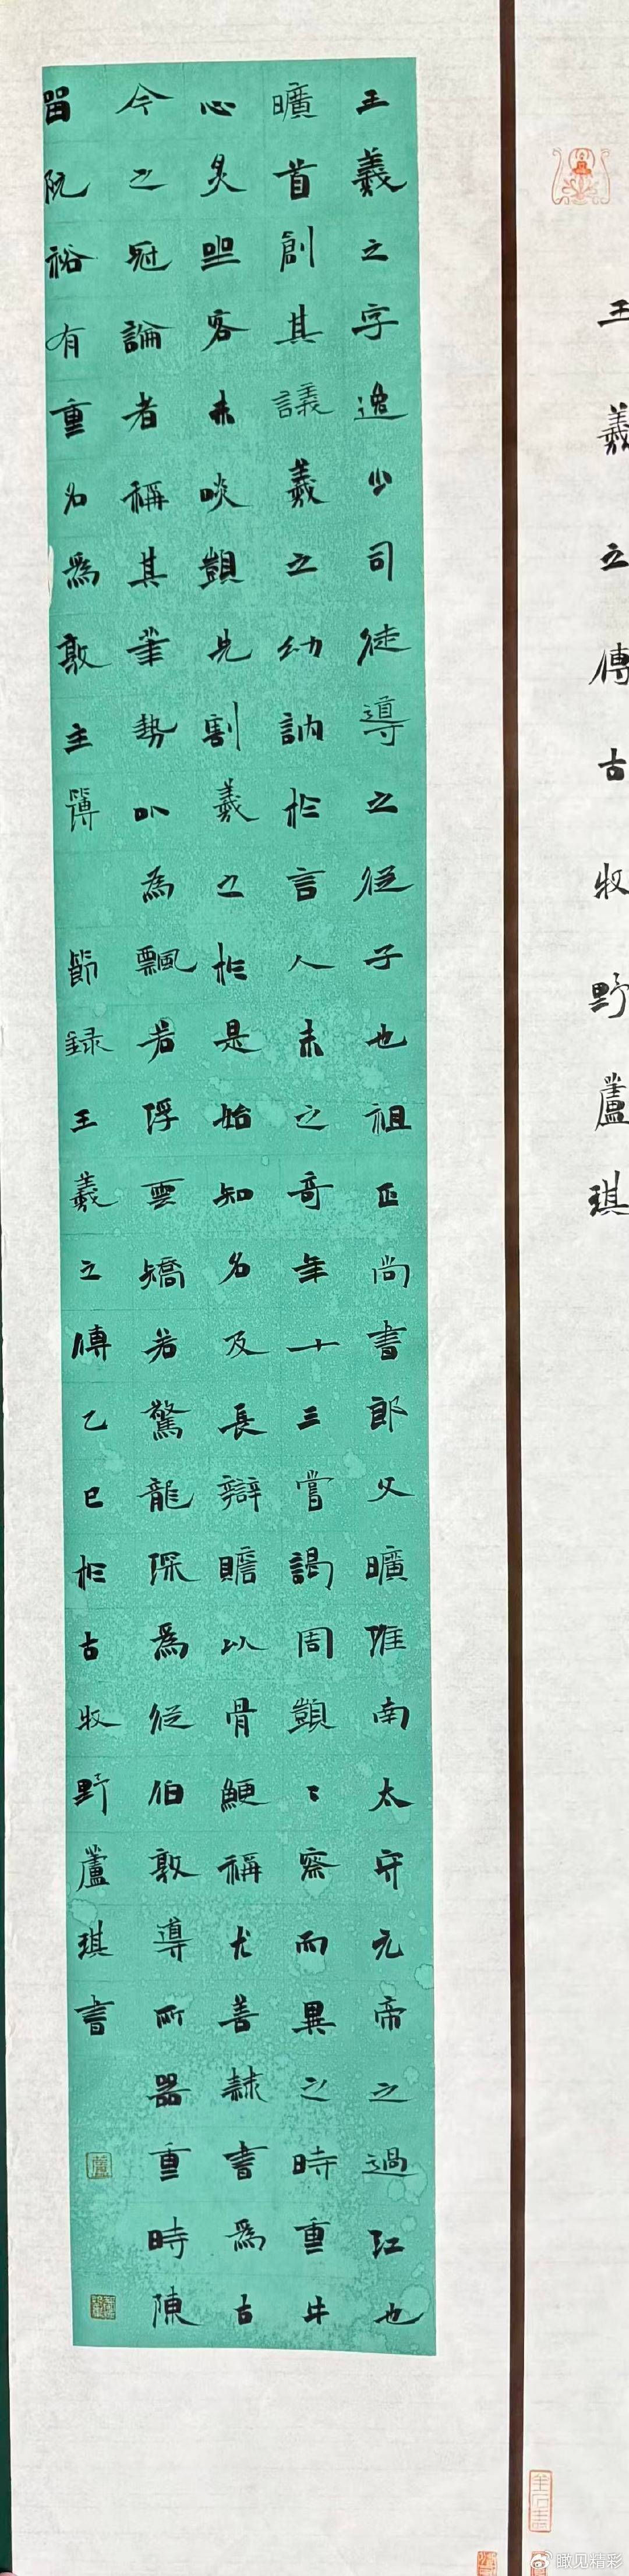 王羲之傳古牧野蘆琪
王羲之字逸少司徒導之從子也祖正尚書郎父曠淮南太守元帝之過江也
曠首創其議羲之幼訥於言人未之奇年十三嘗謁周顗〻察而異之時重牛
心炙坐客未啖顗先割羲之於是始知名及長辯贍以骨鯁稱尤善隸書爲古
今之冠論者稱其筆勢以為飄若浮雲矯若驚龍深爲從伯敦導所器重時陳
留阮裕有重名爲敦主簿 節録王羲之傳乙巳於古牧野蘆琪書
瞰见精彩